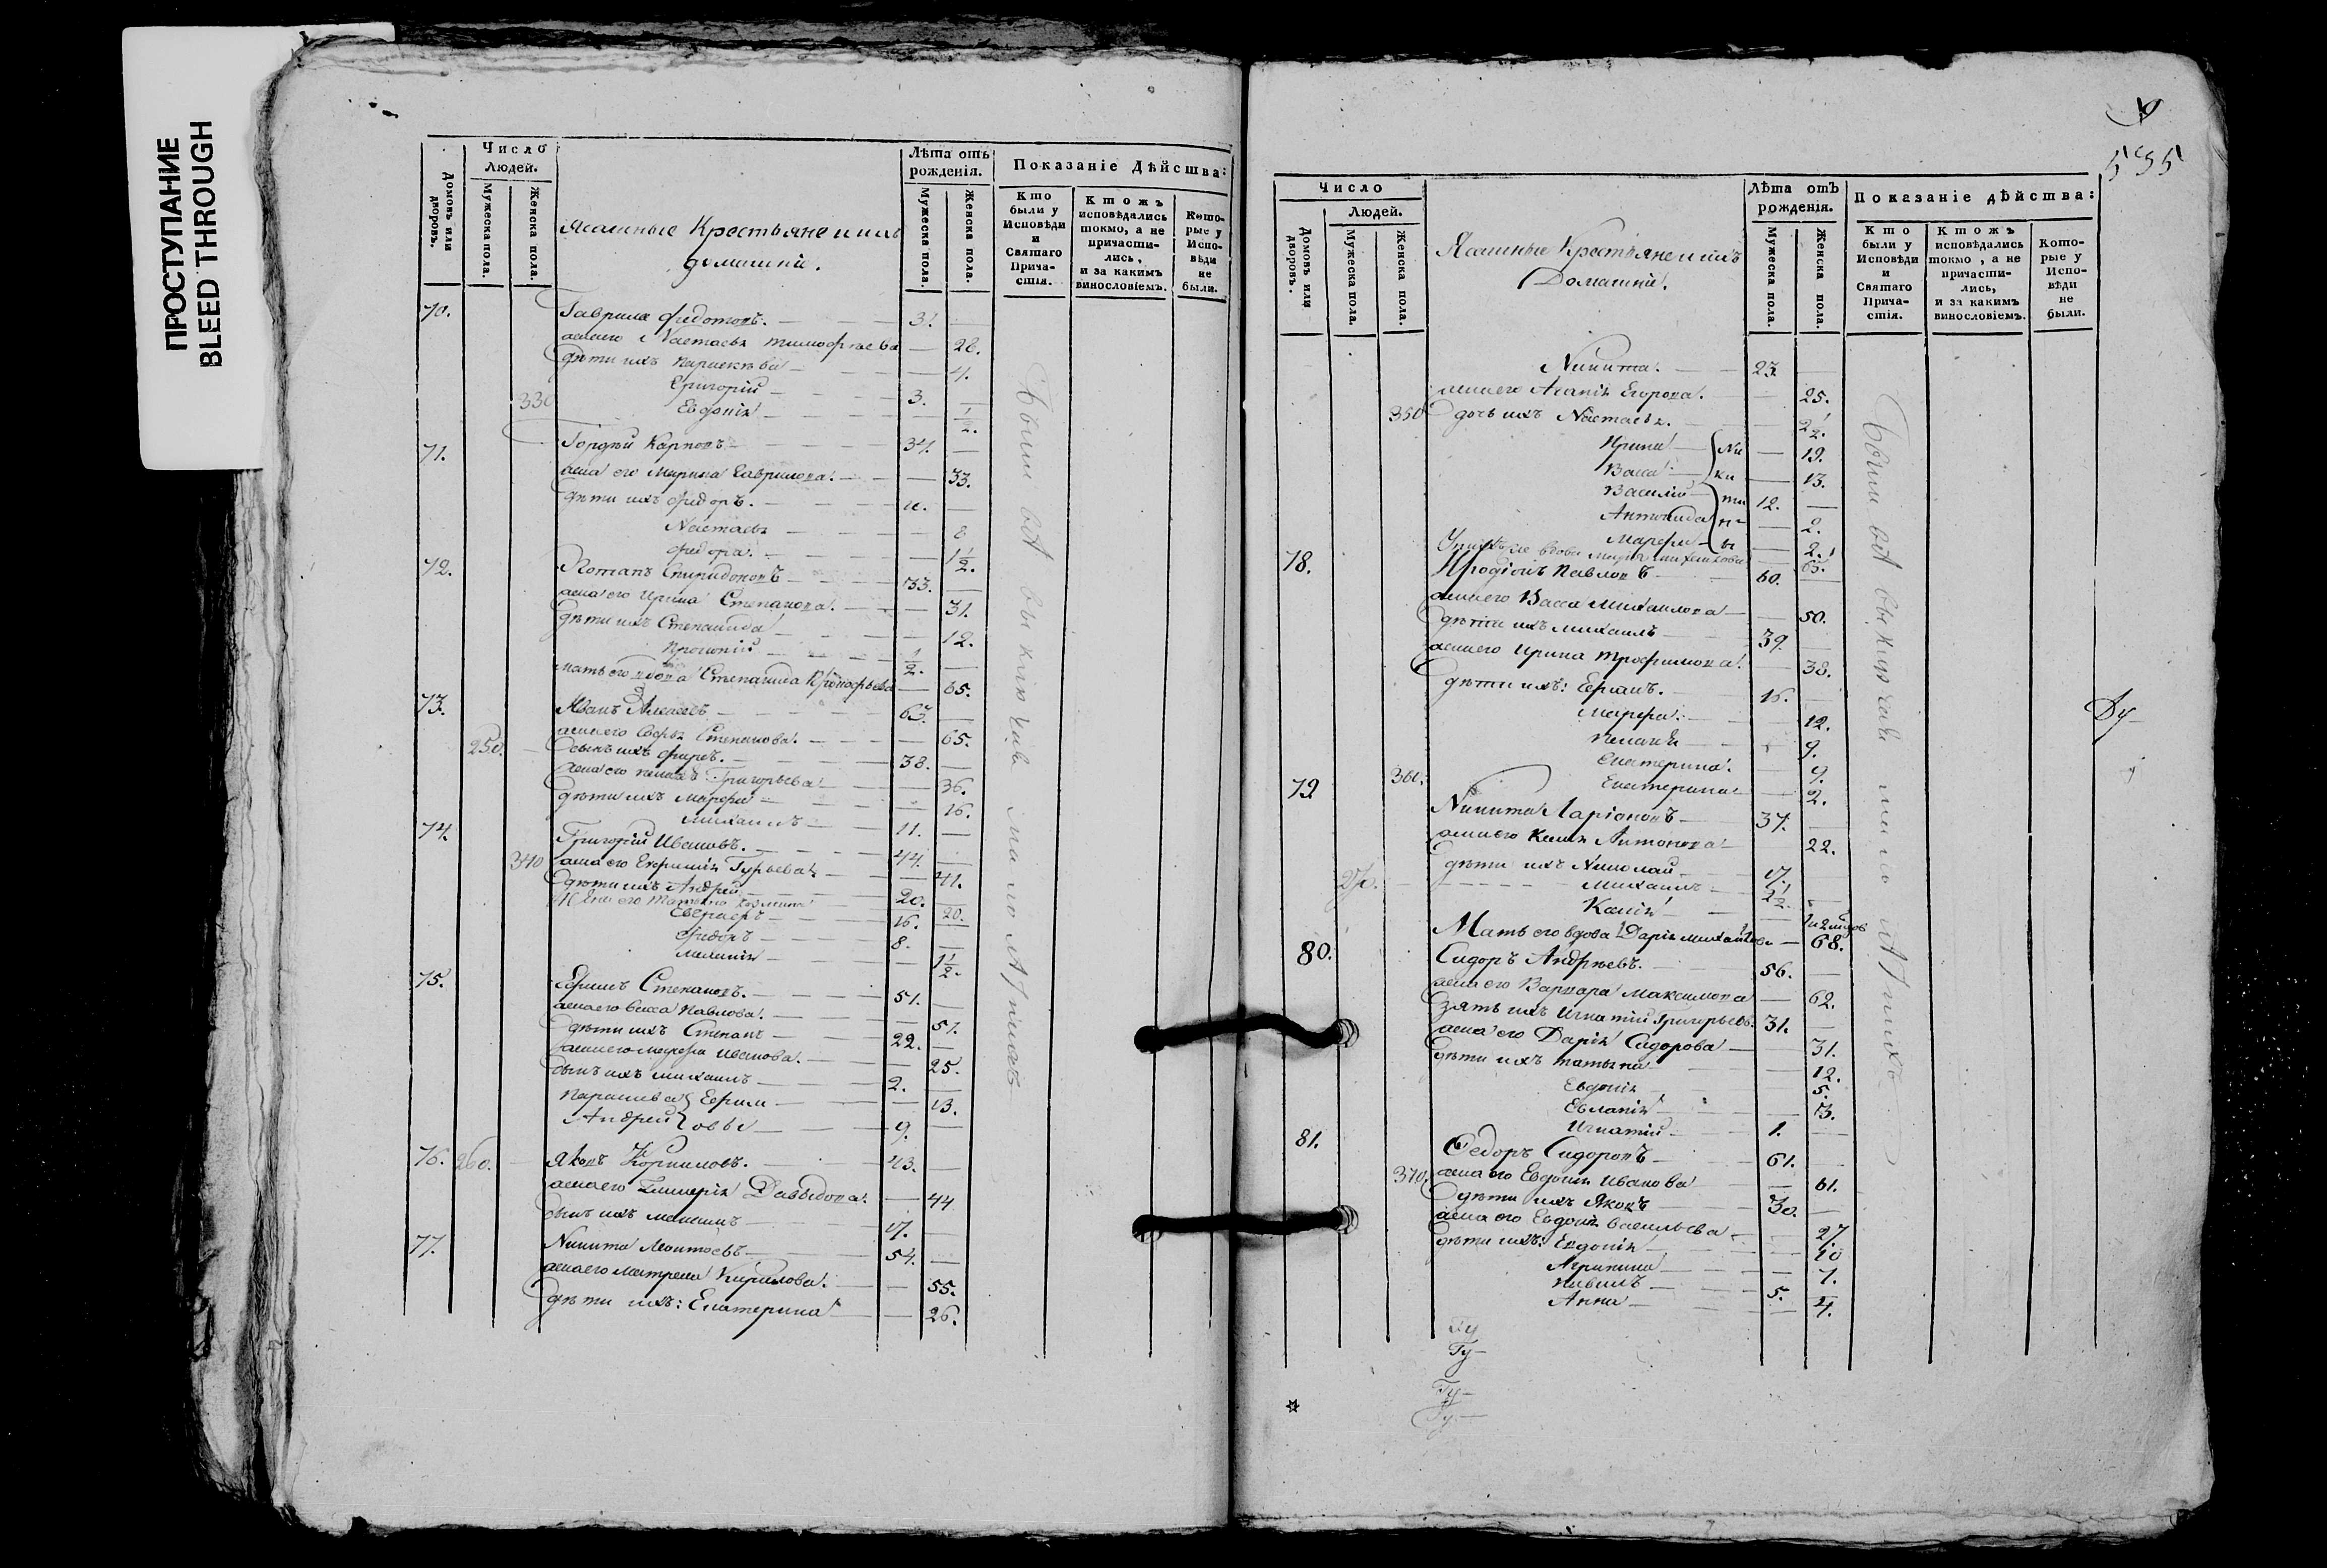 ПРОСТУПАНИЕ
BLEED THROUGH
Число
Людей.
Домовъ или дворовъ.
Мужеска пола.
Женска пола.
Ясашные Крестьяне и ихъ
домашніи.
Лѣта отъ
рожденія.
Мужеска пола.
Женска пола.
Показаніе Дѣйства:
Кто были у Исповѣди и Святаго Прича- стія.
Ктожъ исповѣдались токмо, а не причасти- лись, и за какимъ винословіемъ.
Кото- рые у Испо- вѣди не были.
70. Гаврила Федотовъ. 31.
жена его Настасья Тимофѣева 28.
дѣти ихъ Параскева 4.
Григорій 3.
330 Евдокія ½.
71. Гордѣй Карповъ 34.
жена его Марина Гаврилова. 33.
дѣти ихъ Федоръ. 11.
Настасья 8
Федора. 1½.
72. Романъ Спиридоновъ 33.
жена его Ирина Степанова. 31.
дѣти ихъ Степанида 12.
½.
мать его вдова Степанида 65.
73. Иванъ Алексѣевъ 63.
жена его Софья Степанова. 65.
250. сынъ ихъ 38.
жена его Григорьева 36.
дѣти ихъ Марфа 16.
Михаилъ 11.
74. Григорій Ивановъ. 44.
340 жена его Ефимія Гурьева 41.
дѣти ихъ Андрей 20.
Жена его Татьяна 20.
16.
Федоръ 8.
Меланія 1½.
75. Ефимъ Степановъ. 51.
жена его Васса Павлова. 51.
дѣти ихъ Степанъ 22.
жена его Марфа Иванова. 25.
сынъ ихъ Михаилъ 2.
Ефим 13.
Андрей овы 9.
76. 260. Яковъ Корниловъ. 43.
жена его Гликерія Давыдова. 44
сынъ ихъ 17.
77. Никита 54.
жена его Матрена Кирилова. 55.
дѣти ихъ: Екатерина 26.
Были всѣ
535
Число
Людей.
Домовъ или дворовъ.
Мужеска пола.
Женска пола.
Ясашные Крестьяне и ихъ
Домашніи.
Лѣта отъ
рожденія.
Мужеска пола.
Женска пола.
Показаніе дѣйства:
Кто были у Исповѣди и Святаго Прича- стія.
Ктожъ исповѣдались токмо, а не причасти- лись, и за какимъ винословіемъ.
Кото- рые у Испо- вѣди не были.
Никита. 23
жена его Агапія Егорова. 25.
350 дочь ихъ Настасья. 2½.
Ирина Ни 19.
Васса ки 13.
Василій ти 12.
Антонида 2.
Марфа ы 2.
вдова 65.
78. Иродіонъ Павловъ 60.
жена его Васса Михаилова 50.
дѣти ихъ Михаилъ 39.
жена его Ирина Трофимова. 38.
дѣти ихъ: 16.
Марфа. 12.
Пелагія 9.
Екатерина. 9.
360. Екатерина 2.
79 Никита Ларіоновъ 37.
жена его Антонова 22.
дѣти ихъ Николай
270. Михаилъ 2½.
Мать его вдова Дарія 68.
80. Сидоръ Андрѣевъ. 56.
жена его Варвара Максимова 62.
зять ихъ Игнатій Григорьевъ. 31.
жена его Дарія Сидорова 31.
дѣти ихъ Татьяна 12.
Евдокія 5.
Евланія 3.
Игнатій 1.
81. Ѳедоръ Сидоровъ 61.
370. жена его Евдокія Иванова 61.
дѣти ихъ Яковъ 30.
жена его Евдокія Васильева 27.
дѣти ихъ: Евдокія 10
Агрипина 7.
Павелъ 5.
Анна 4.
Были всѣ